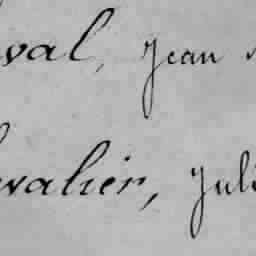 val, Jean
valier, Juli